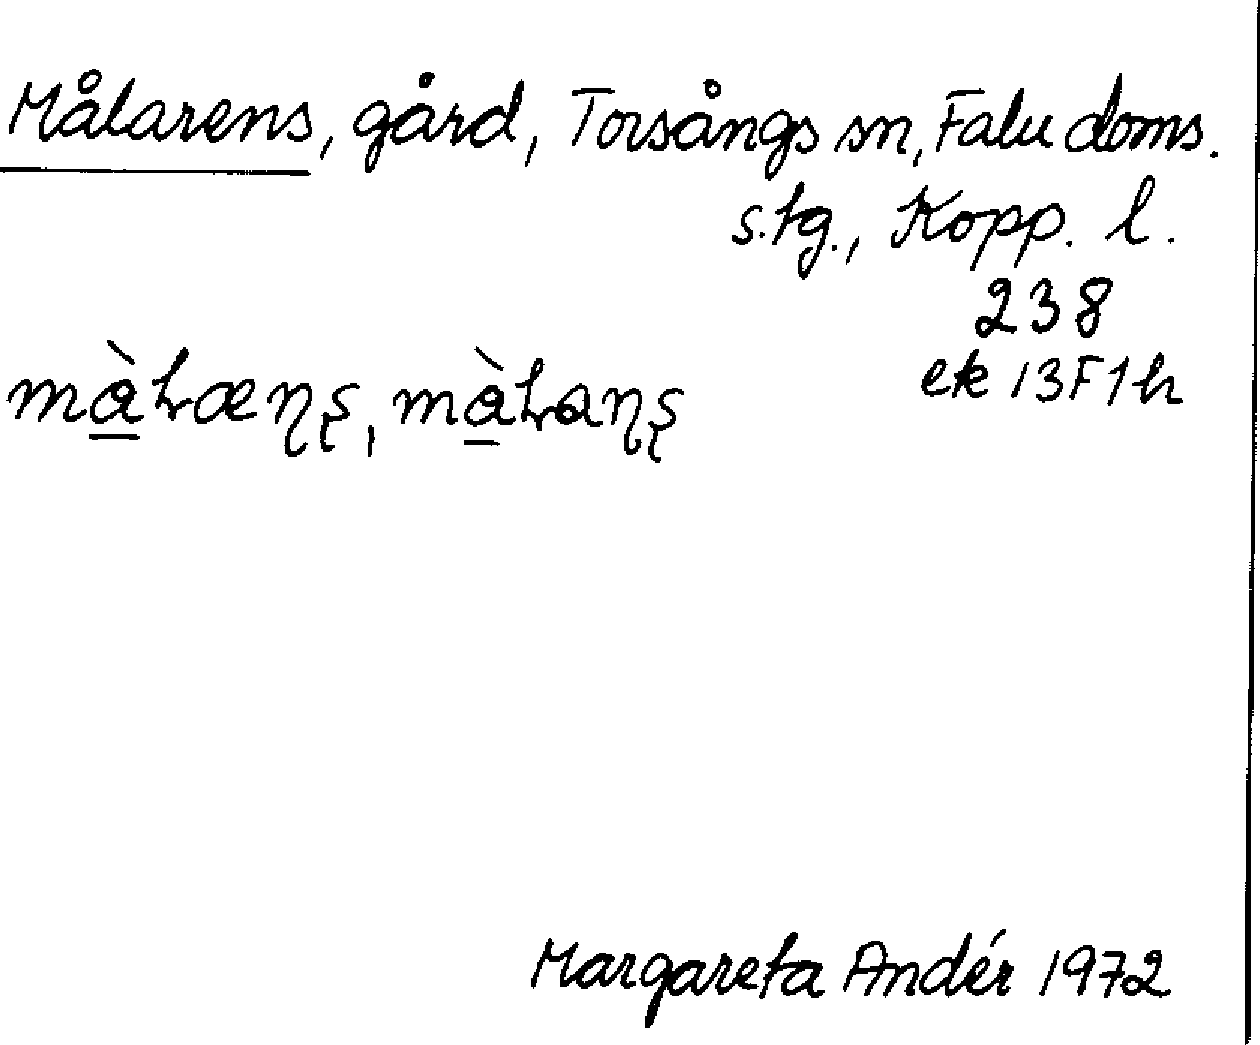 Målarens, gård, Torsångs sn, Falu doms.
s.tg., Kopp. l.
238
ek 13F1h
Margareta Andér 1972